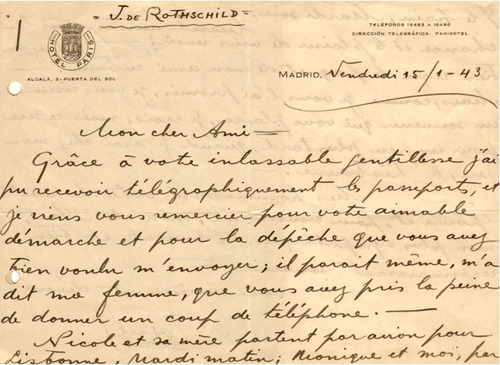 = J. DE ROTHSCHILD =
HOTEL PARIS
ALCALÁ, 2-PUERTA DEL SOL
TELÉFONOS 16483 Y 16496
DIRECCIÓN TELEGRÁFICA: PARISOTEL
MADRID, Vendredi 15/1-43
Mon cher Ami =
Grâce à vote inlassable gentillesse j'ai
pu recevoir télégraphiquement les passeports, et
je viens vous remercier pour vote aimable
démarche et pour la dépêche que vous avez
bien voulu m'envoyer; il parait même, m'a
dit ma femme, que vous avez pris la peine
de donner un coup de téléphone. —
Nicole et sa mère partent par avion pour
Lisbonne, Mardi matin; Monique et moi, par